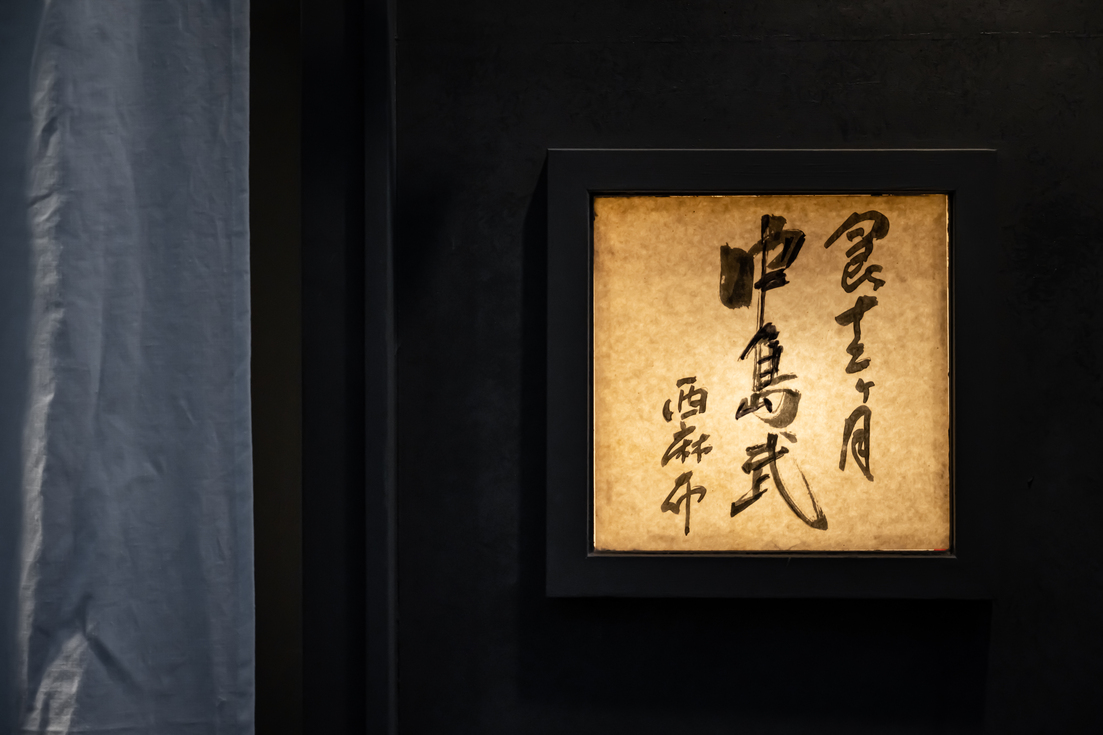 食十二ヶ月
中島武
西麻布